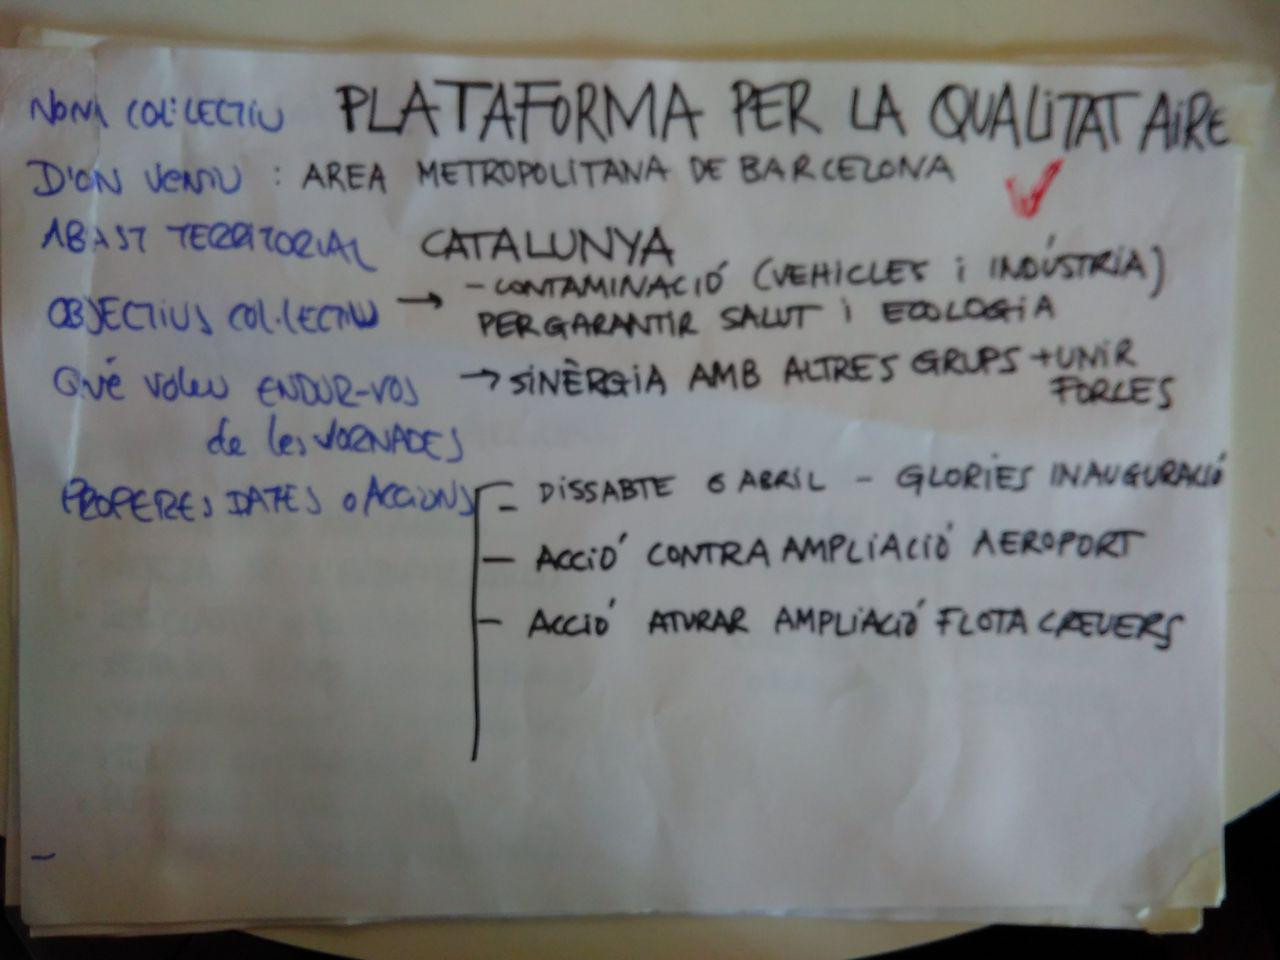 NOM COL·LECTIU PLATAFORMA PER LA QUALITAT AIRE
D'ON VENIU : AREA METROPOLITANA DE BARCELONA
ABAST TERRITORIAL CATALUNYA
OBJECTIUS COL·LECTIU → - CONTAMINACIÓ (VEHICLES i INDÚSTRIA)
PER GARANTIR SALUT i ECOLOGIA
Què voleu ENDUR-VOS → SINÈRGIA AMB ALTRES GRUPS + UNIR
FORCES
de les JORNADES
PROPERES DATES o ACCIONS - DISSABTE 6 ABRIL - GLORIES INAUGURACIÓ
- ACCIÓ CONTRA AMPLIACIÓ AEROPORT
- ACCIÓ ATURAR AMPLIACIÓ FLOTA CREUERS